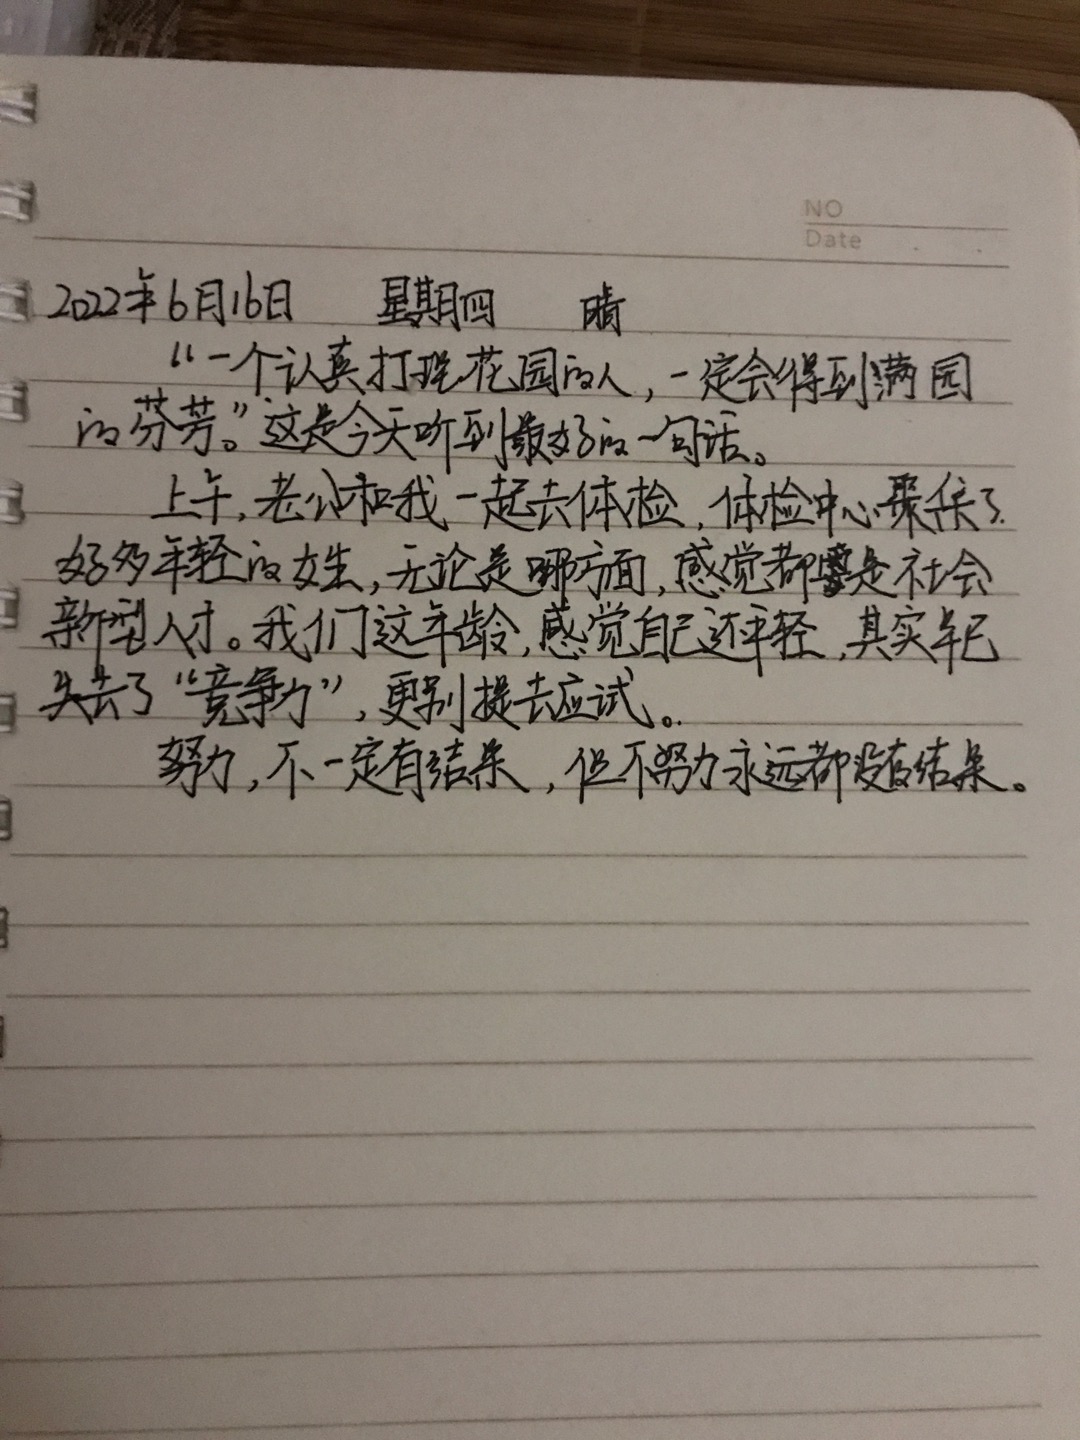 NO
Date
2022年6月16日 星期四 晴
“一个认真打理花园的人，一定会得到满园
的芬芳。”这是今天听到最好的一句话。
上午，老公和我一起去体检，体检中心聚集了
好多年轻的女生，无论是哪方面，感觉都是社会
新型人才。我们这年龄，感觉自己还年轻，其实早已
失去了“竞争力”，更别提去应试。
努力，不一定有结果，但不努力永远都没有结果。